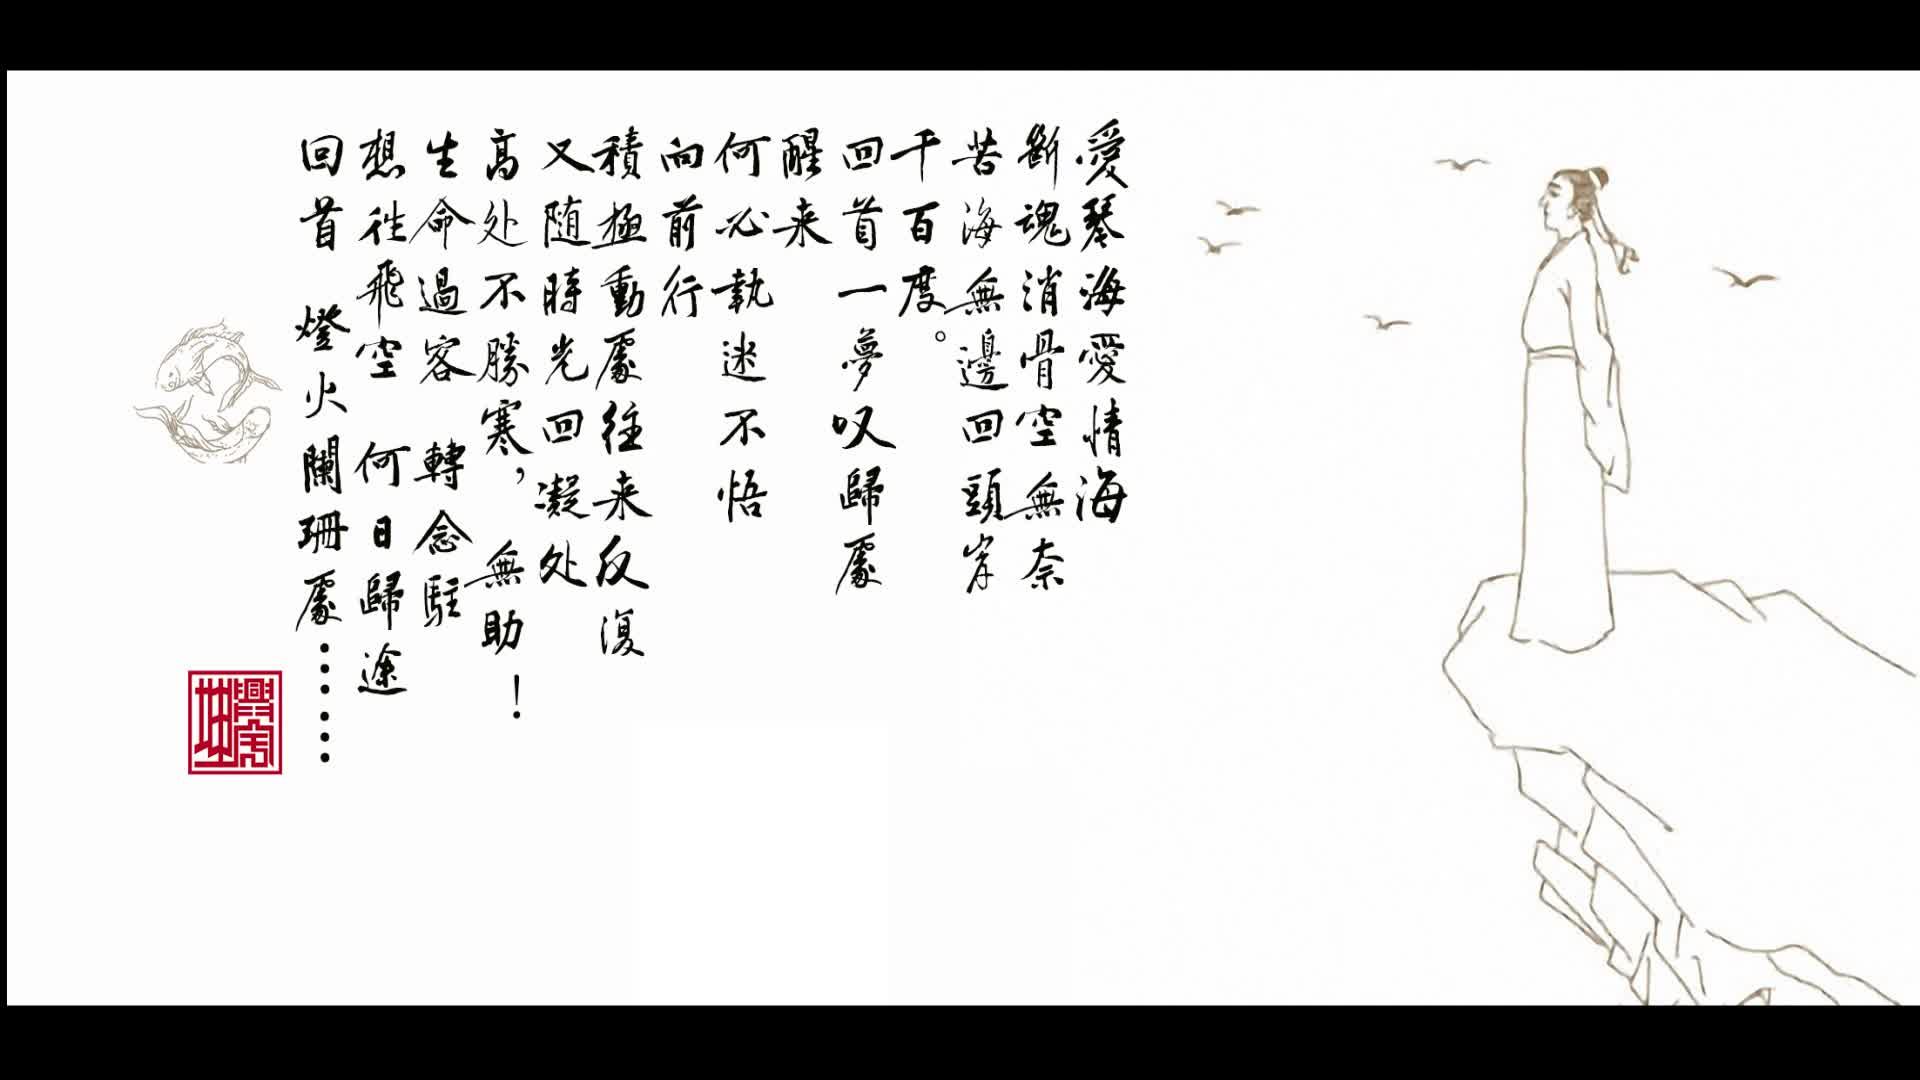 愛琴海愛情海
斷魂消骨空無奈
苦海無邊回頭岸
千百度。
回首一夢叹歸處
醒来
何必執迷不悟
向前行
積極動處往来反復
又随時光回凝处
高处不勝寒，無助！
生命過客 轉念駐
想往飛空 何日歸途
回首 燈火闌珊處……